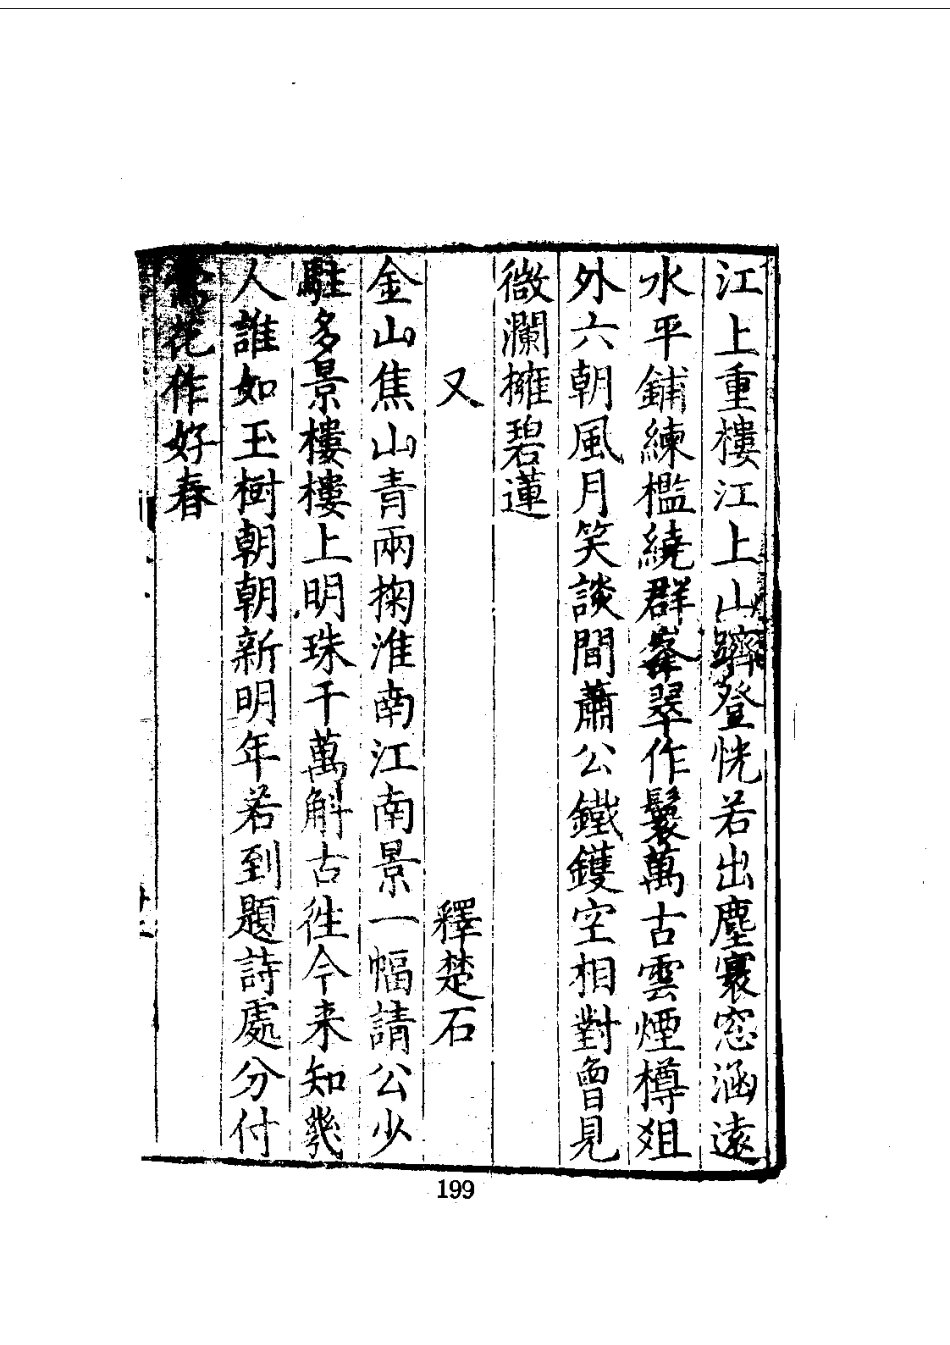 江上重樓江上山躋登恍若出塵寰窓涵遠
水平鋪練檻繞群峯翠作鬟萬古雲煙樽俎
外六朝風月笑談間蕭公鐵鑊空相對曾見
微瀾擁碧蓮
又　釋楚石
金山焦山青兩掬淮南江南景一幅請公少
駐多景樓樓上明珠千萬斛古徃今来知幾
人誰如玉樹朝朝新明年若到題詩處分付
鶯花作好春
199